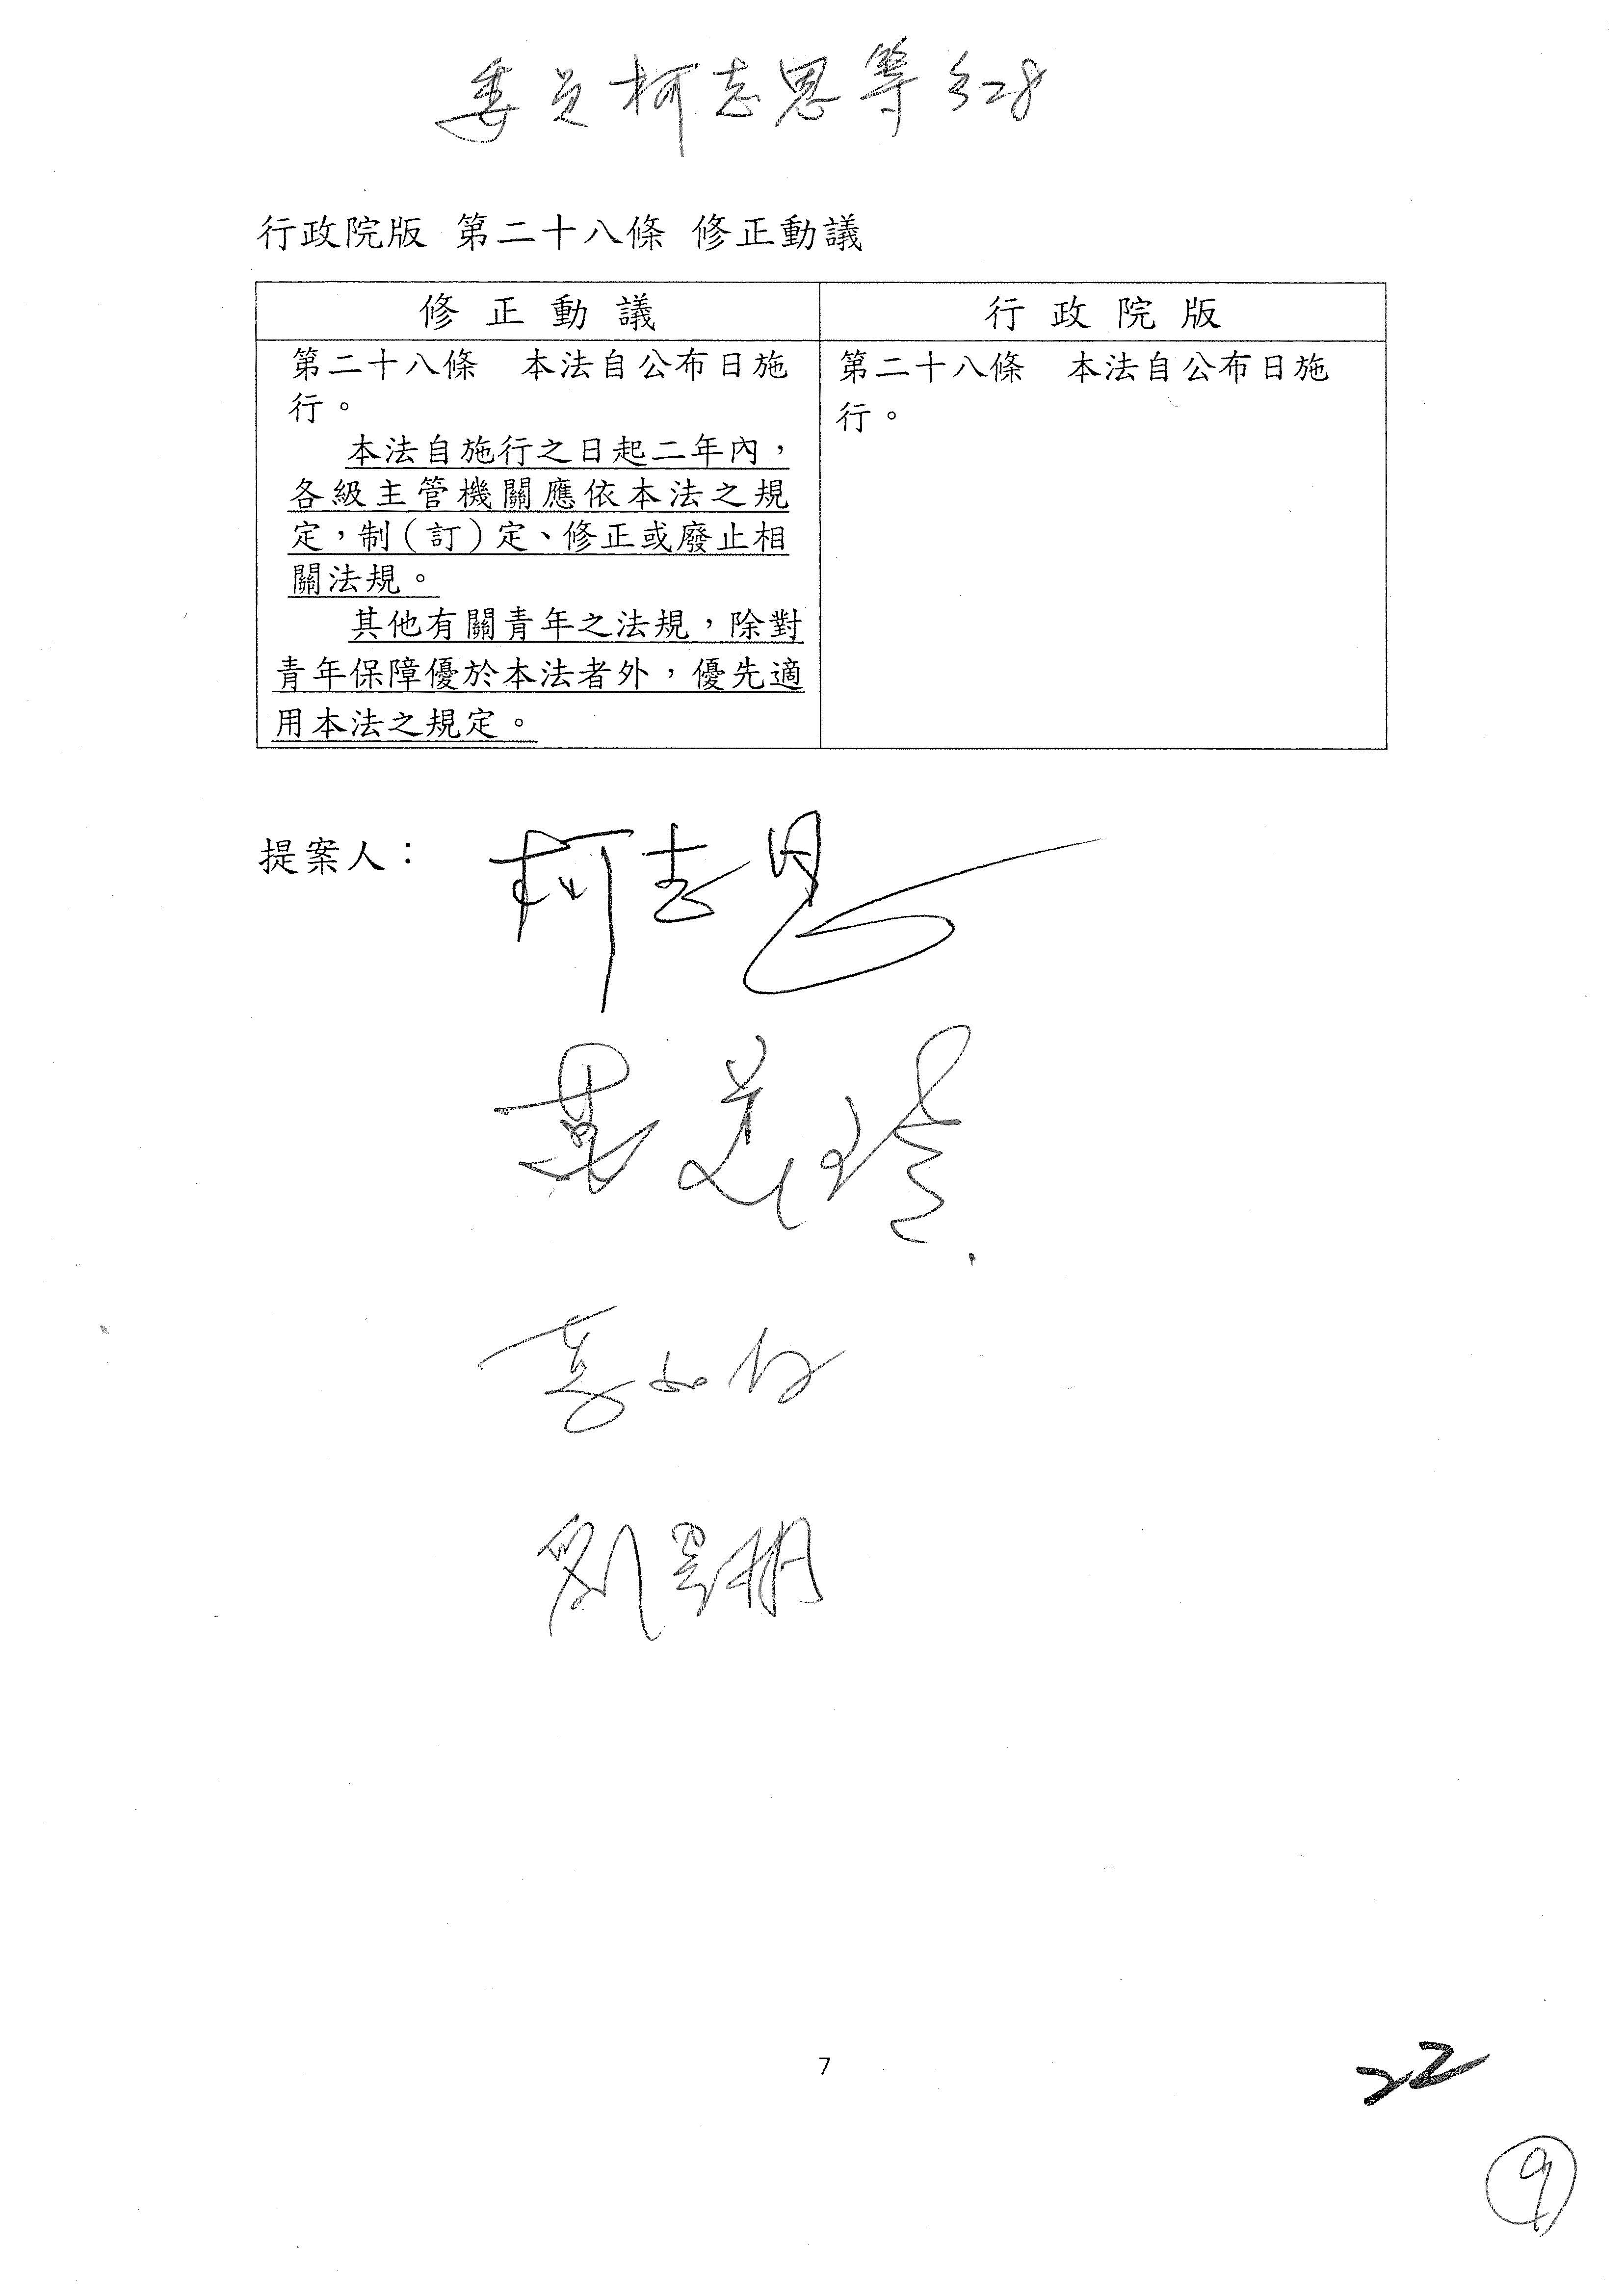 委員柯志恩等 528
行政院版 第二十八條 修正動議
修正動議
行政院版
第二十八條 本法自公布日施
行。
本法自施行之日起二年內，
各級主管機關應依本法之規
定，制(訂)定、修正或廢止相
關法規。
其他有關青年之法規，除對
青年保障優於本法者外，優先適
用本法之規定。
第二十八條 本法自公布日施
行。
提案人：
柯志恩
葉元之
7
22
9